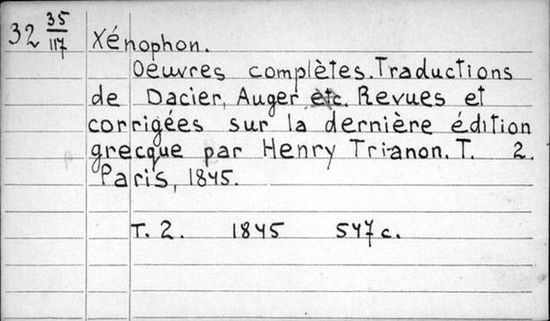 32 35/117
Xénophon.
Oeuvres complètes. Traductions
de Dacier, Auger etc. Revues et
corrigées sur la dernière édition
grecque par Henry Trianon. T. 2.
Paris, 1845.
T. 2. 1845 547 c.